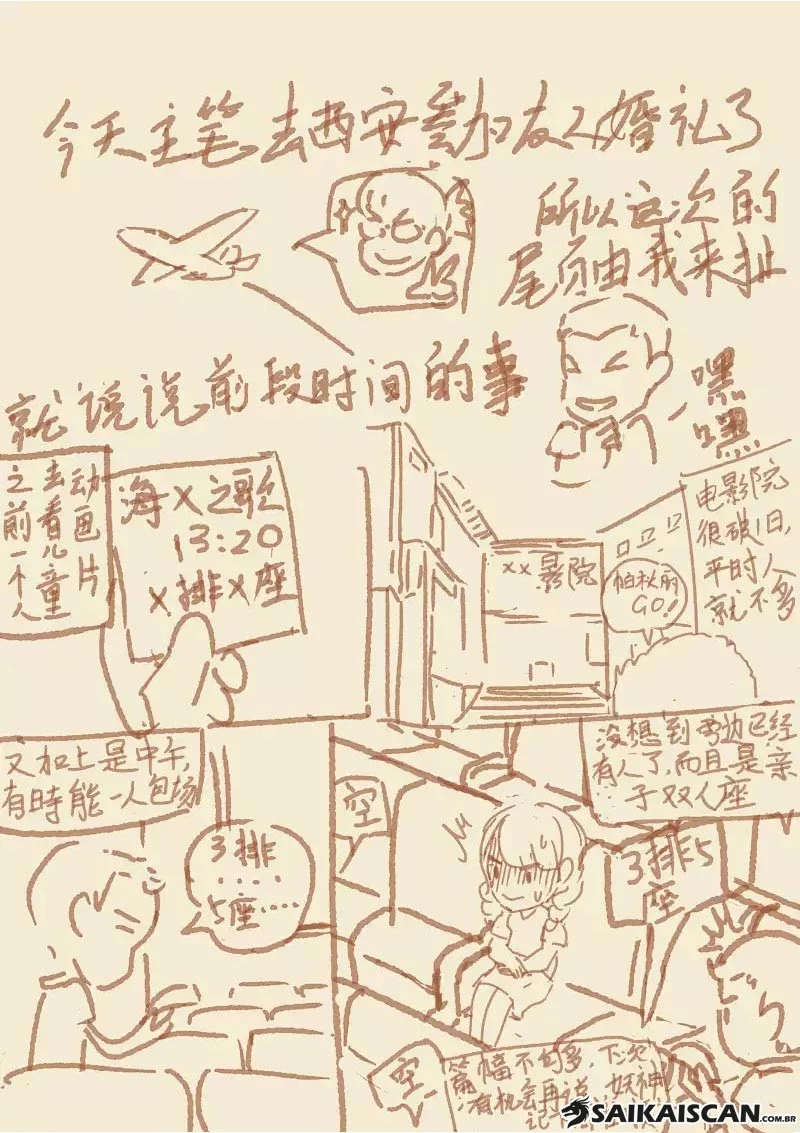 今天主笔去西安参加友人婚礼了
所以这次的
尾页由我来扯
就说说前段时间的事
嘿
嘿
动画片
去看儿童
之前一个人
海X之歌
13:20
X排X座
XX影院
电影院
很破旧,
平时人
就不多
帕秋莉
GO!
又加上是中午,
有時能一人包场
3排
....
5座……
没想到旁边已经
有人了,而且是亲
子双人座
空
3排5
座
空
篇幅不够多,下次
有机会再说,妖神
记
SAIKAISCAN.COM.BR